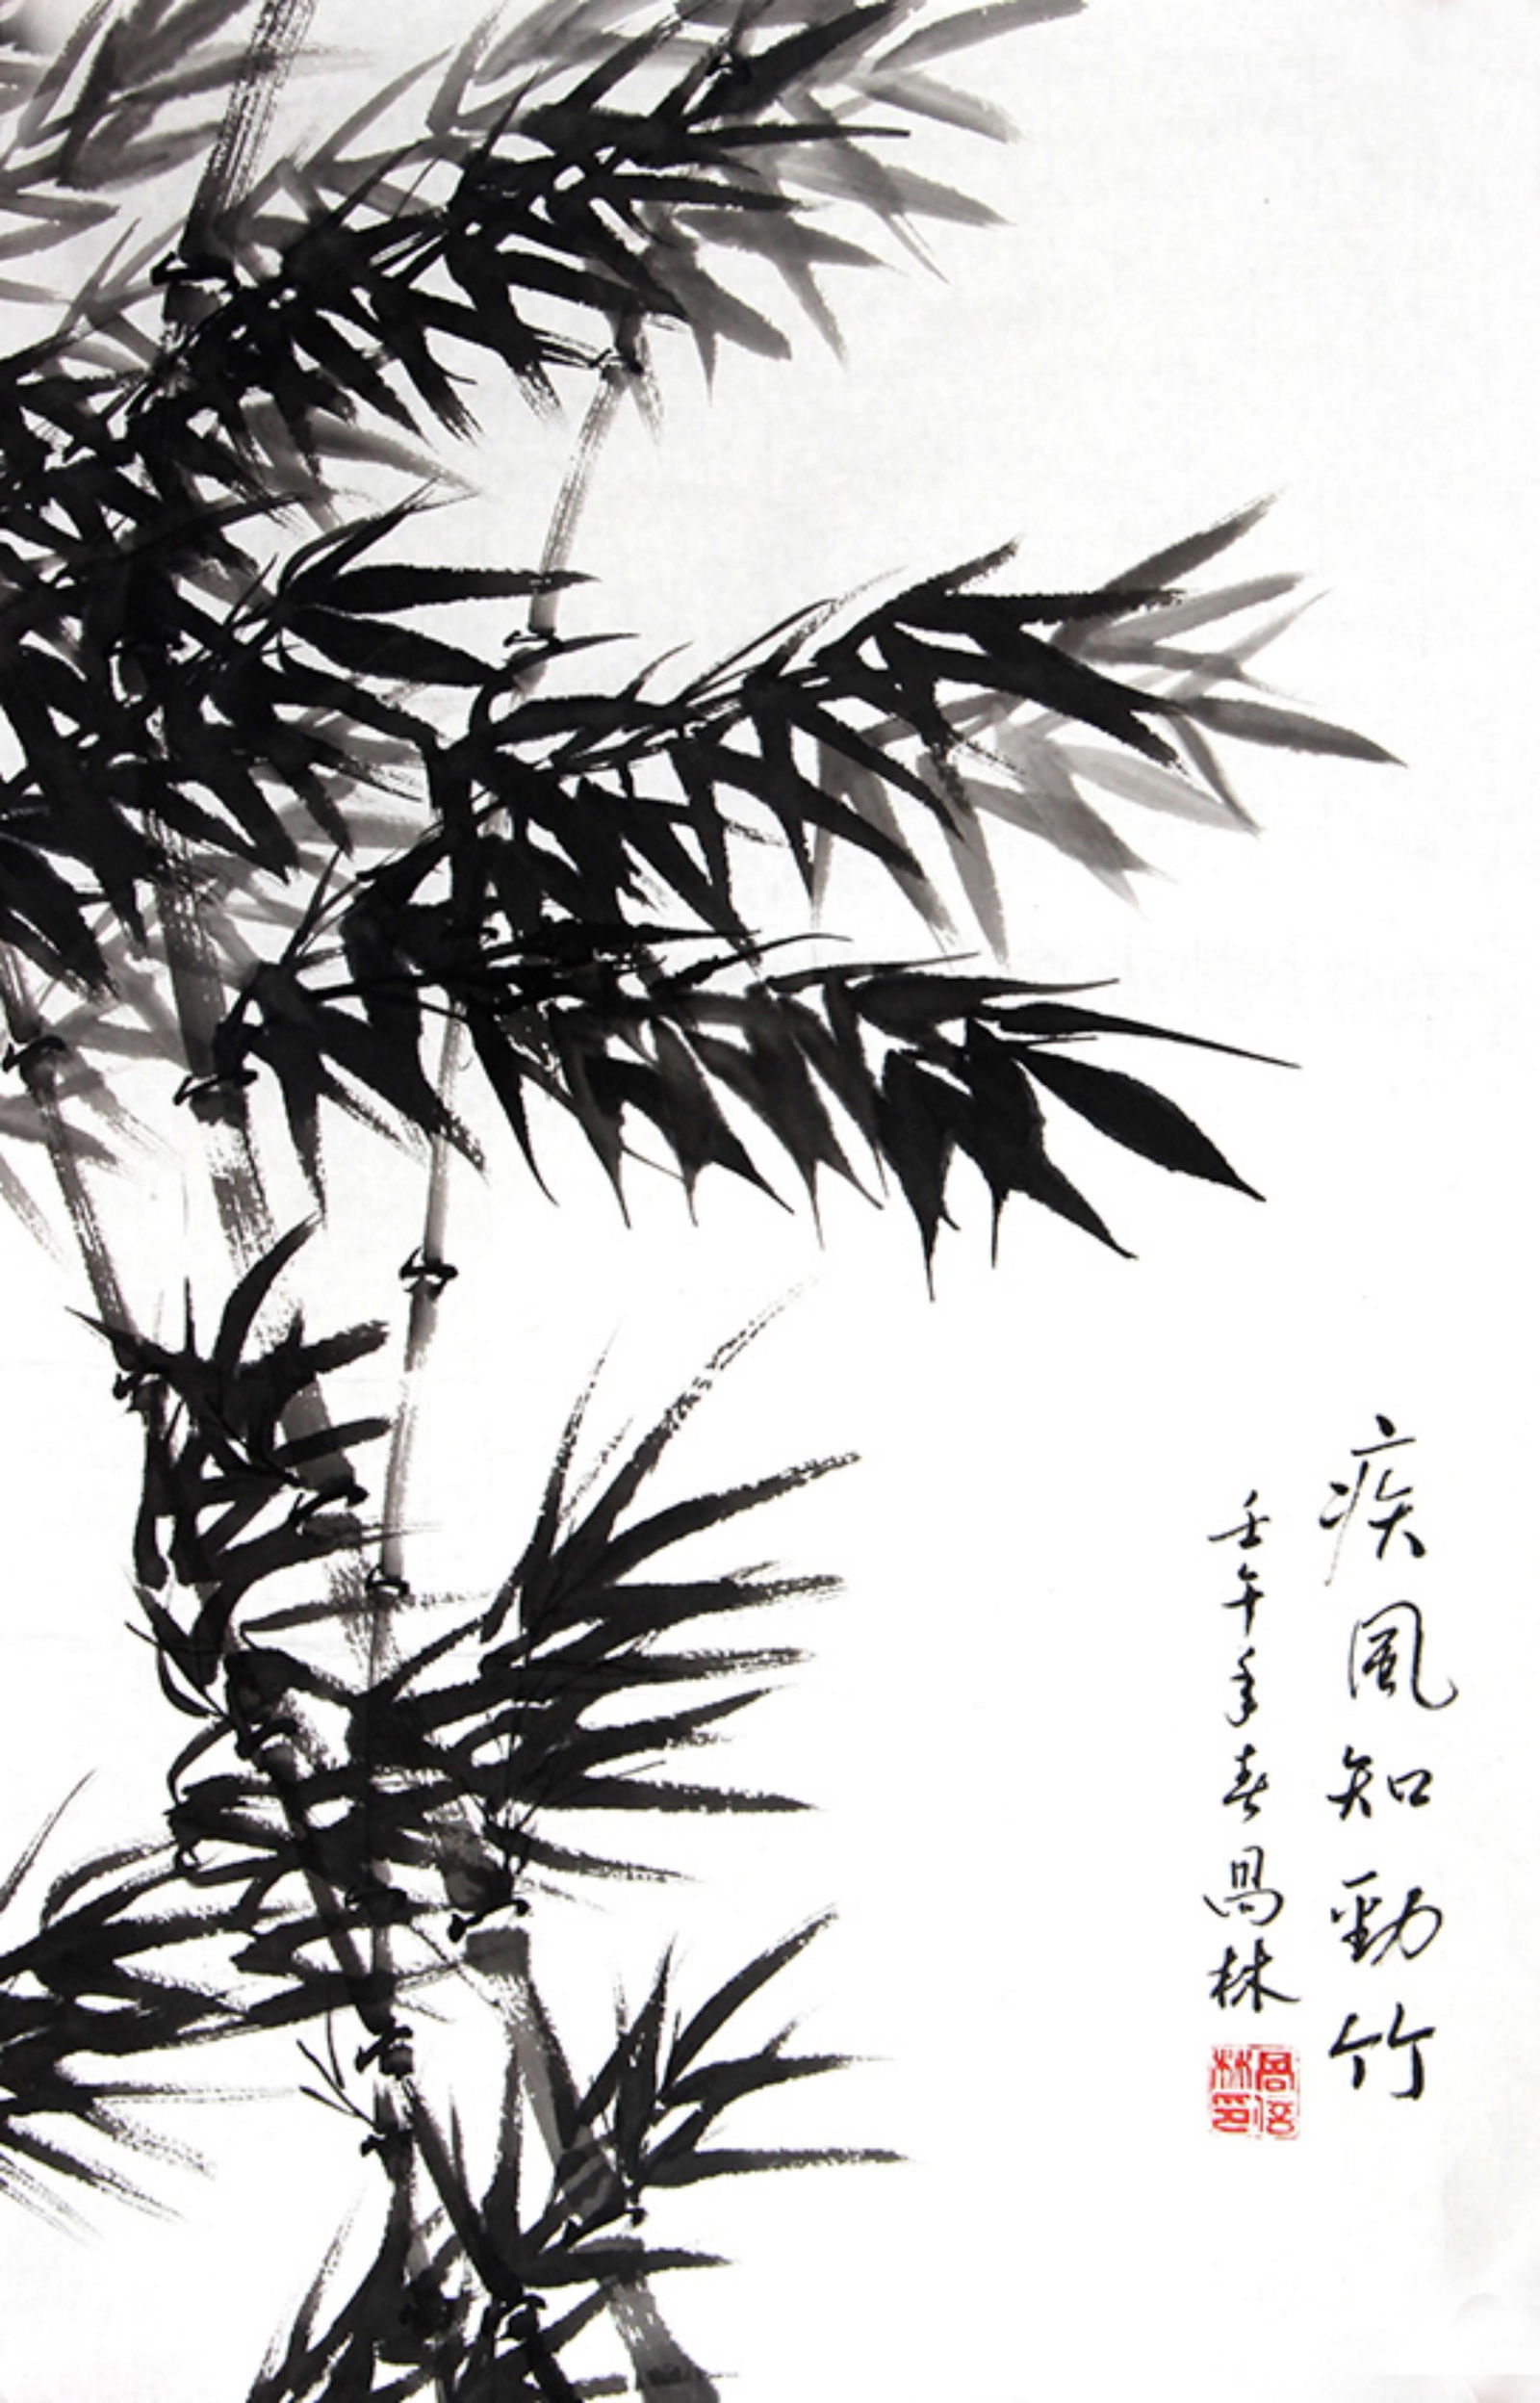 疾風知勁竹
壬午年春昌林